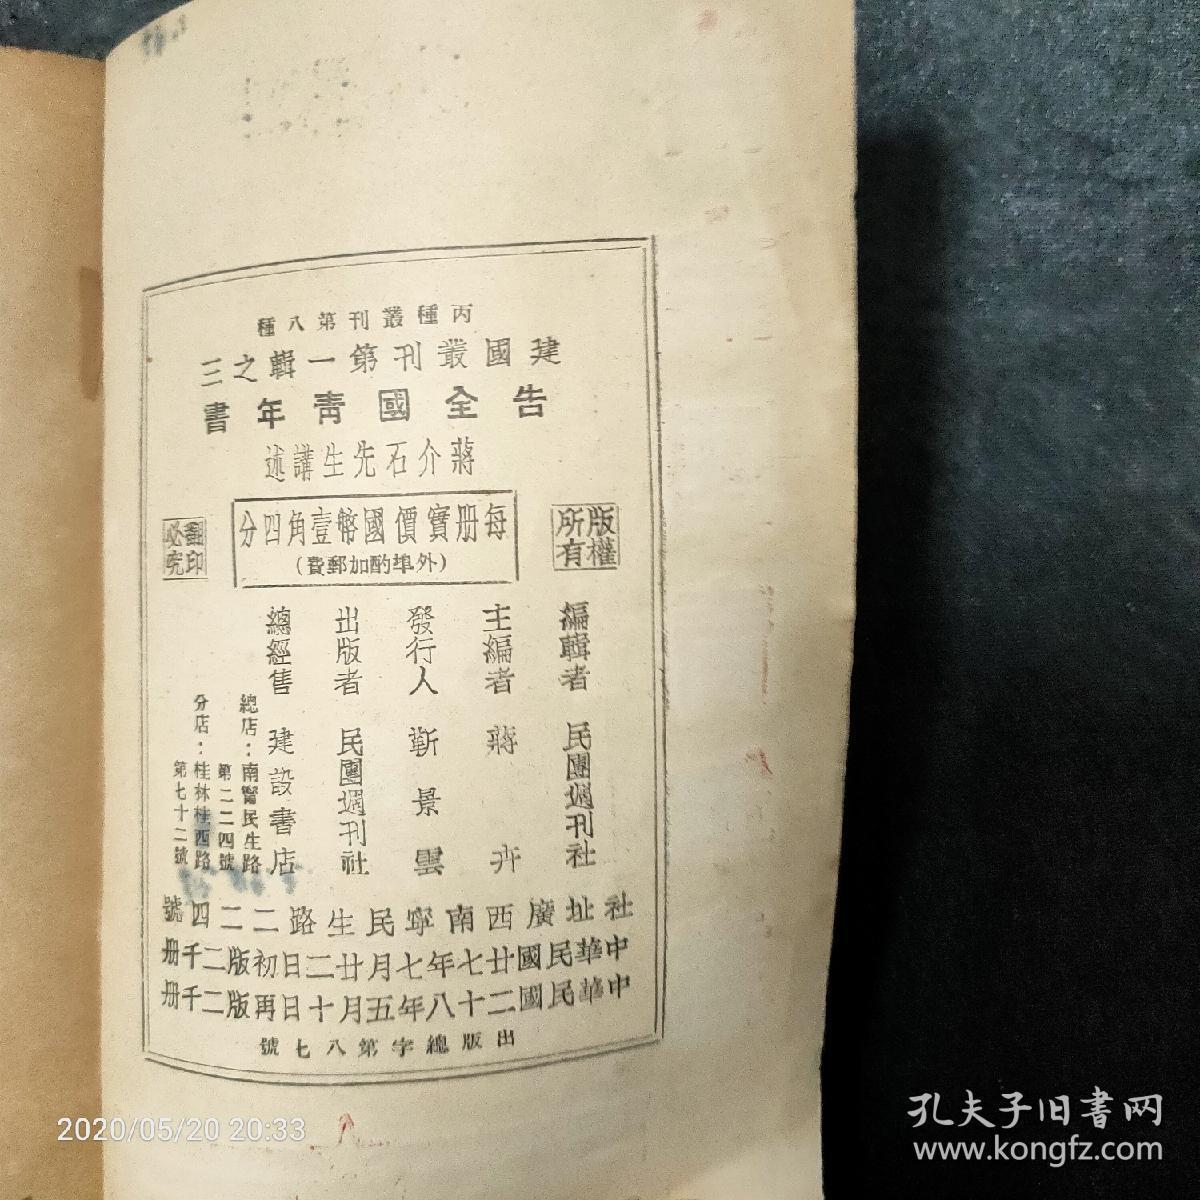 丙種叢刊第八種
建國叢刊第一輯之三
告全國靑年書
蔣介石先生講述
版權所有
每册實價國幣壹角四分
(外埠酌加郵費)
翻印必究
編輯者 民團週刊社
主編者 蔣卉
發行人 靳景雲
出版者 民團週刊社
總經售 建設書店
總店：南寧民生路第二二四號
分店：桂林桂西路第七十二號
社址廣西南寧民生路二二四號
中華民國廿七年七月廿二日初版二千册
中華民國二十八年五月十日再版二千册
出版總字第八七號
2020/05/20 20:33
孔夫子旧書网
www.kongfz.com